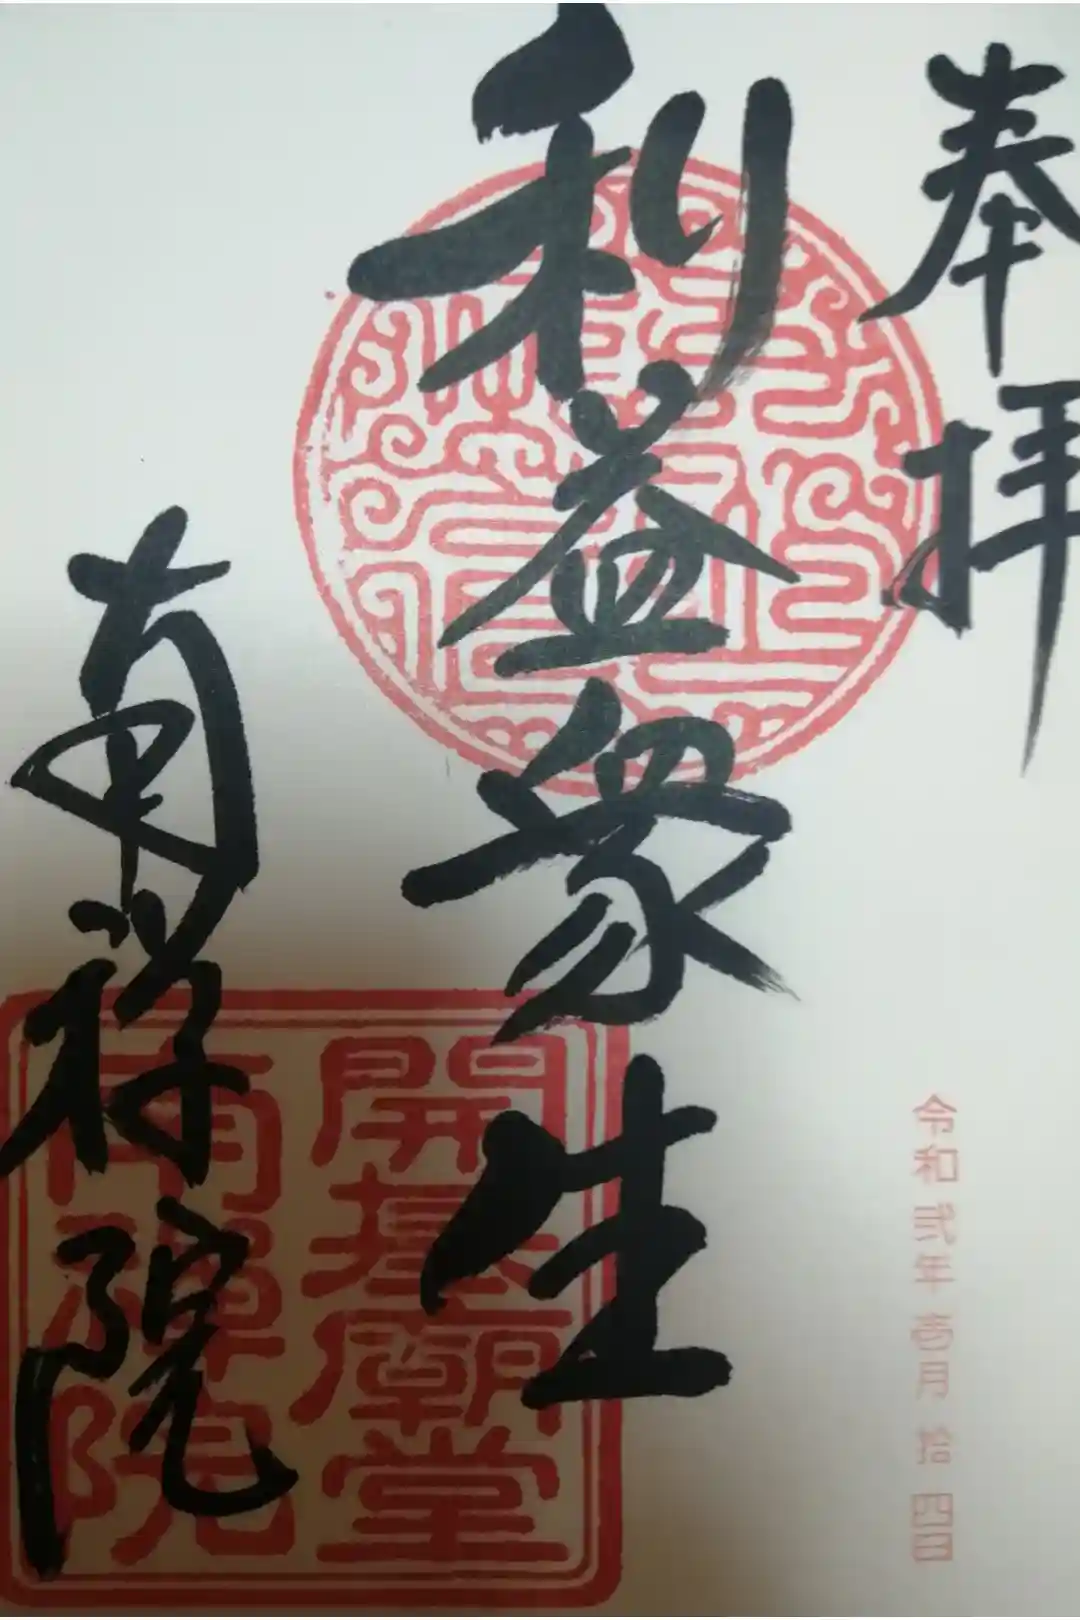 奉拝
令和弐年壱月拾四日
利益衆生
南禅院
開基廟堂
南禪院